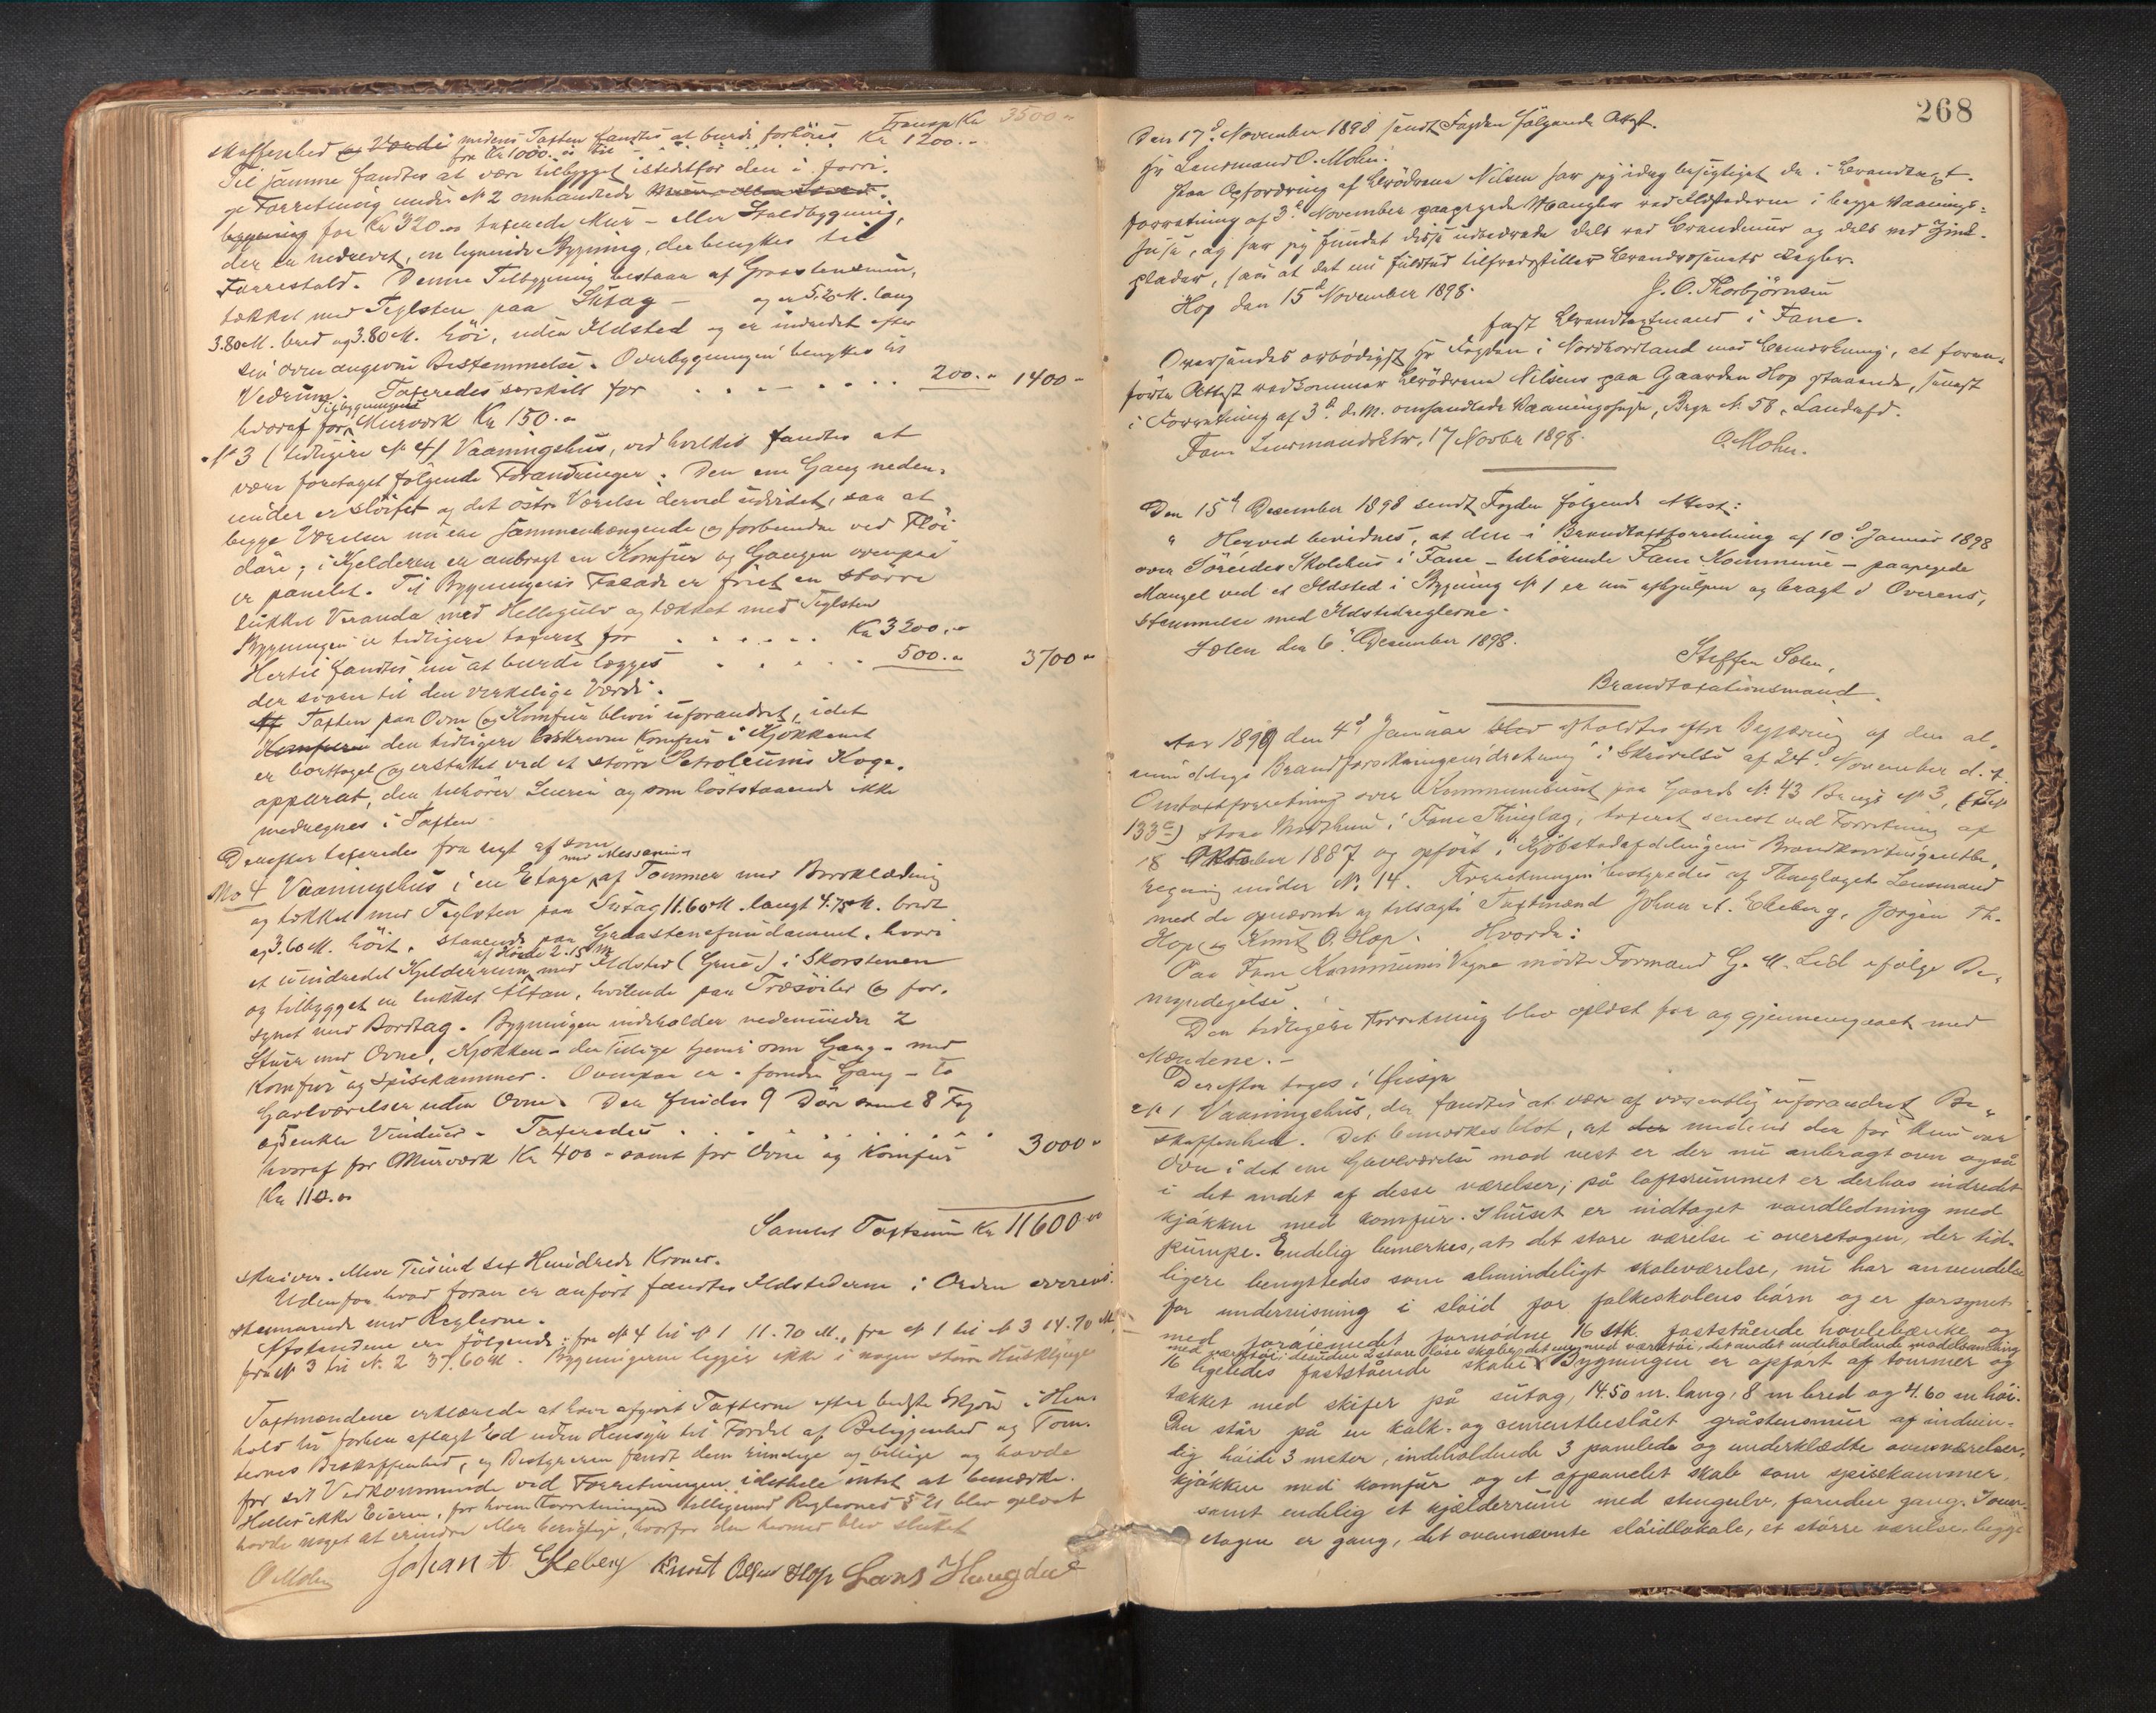 Transp Kr 3500 "
skaffenhed og Værdi medens Taxten fandtes at burde forhöies
fra Kr 1000.00 til . . . . . Kr 1200.–
Til samme fandtes at være tilbygget istedetfor den i forri-
ge Forretning under № 2 omhandlede
bygning for Kr 320.00 taxerede Mur- eller Staldbygning,
der er nedrevet, en lignende Bygning, der benyttes til
Faarestald. Denne Tilbygning bestaar af Graastensmur,
tækket med Teglsten paa Sutag – og er 5.20 M. lang
3.80 M. bred og 3.80 M. höi, uden Ildsted og er indredet efter
sin ovenangivne Bestemmelse. Overbygningen benyttes til
Vedrum. Taxeredes særskilt for . . . . . 200.– 1400 "
hvoraf for Tilbygningens Murværk Kr 150.–
№ 3 (tidligere № 4) Vaaningshus, ved hvilket fandtes at
være foretaget følgende Forandringer: Den ene Gang neden-
under er slöifet og det östre Værelse derved udvidet, saa at
begge Værelser nu ere sammenhængende og forbundne ved Flöi-
döre; i Kjelderen er anbragt en Komfur og Gangen ovenpaa
er panelet. Til Bygningens Facade er föiet en större
lukket Veranda med Hellegulv og tækket med Teglsten
Bygningen er tidligere taxeret for . . . . . Kr 3200.–
Hertil fandtes nu at burde lægges . . . . 500.– 3700 "
der svarer til den virkelige Værdi.
Taxten paa Ovne og Komfur bliver uforandret, idet
Komfuren den tidligere beskrevne Komfur i Kjökkenet
er borttaget og erstattet ved et större Petroleums Koge-
apparat, der tilhörer Leieren og som löststaaende ikke
medregnes i Taxten
Derefter taxeredes fra nyt af som
No 4 Vaaningshus i en Etage med Messanin af Tømmer med Bordklædning
og tækket med Teglsten paa Sutag 11.60 M. langt 4.75 M. bredt
og 3.60 M. höit. staaende paa Graastensfundament, hvori
et uindredet Kjelderrum af Höide 2.15 M med Ildsted (Grue) i Skorstenen
og tilbygget en lukket Altan, hvilende paa Træsöiler og for-
synet med Bordtag. Bygningen indeholder nedenunder 2
Stuer med Ovne, Kjökken – der tillige tjener som Gang – med
Komfur og Spisekammer. Ovenpaa er – foruden Gang – to
Gavlværelser uden Ovne. Der findes 9 Döre samt 8 Fag
og 5 enkle Vinduer – Taxeredes . . . . . . . 3000 "
hvoraf for Murværk Kr 400 – samt for Ovne og Komfur
Kr 110.–
Samlet Taxtsum Kr 11600 "
skriver. Elleve Tusind sex Hundrede Kroner.
Udenfor hvad foran er anfört fandtes Ildstederne i Orden overens-
stemmende med Reglerne.
Afstandene er følgende: fra № 4 til № 1 11.70 M., fra № 1 til № 3 14.70 M,
fra № 3 til № 2 37.60 M. Bygningerne ligger ikke i nogen större Husklynge
Taxtmændene erklærede at have afgivet Taxterne efter bedste Skjön i Hen-
hold til forhen aflagt Ed uden Hensyn til Fordel af Beliggenhed og Tom-
ternes Beskaffenhed, og Bestyreren fandt dem rimelige og billige og havde
for sit Vedkommende ved Forretningen idethele intet at bemærke.
Heller ikke Eieren, for hvem Forretningen tilligemed Reglernes § 21 blev oplæst
havde noget at erindre eller berigtige, hvorfor den hermed blev sluttet
O Mohn Johan A. Ekeberg Knut Olsen Hop Hans Haugdal
268
Den 17d November 1898 sendt Fogden følgende Attest.
Hr Lensmand O. Mohn.
Paa Opfordring af Brödrene Nilsen har jeg idag besigtiget de i Brandtaxt-
forretning af 3d November paapegede Mangler ved Ildstederne i begge Vaanings-
huse, og har jeg fundet disse udbedrede dels ved Brandmur og dels ved Zink-
plader, saa at det nu fuldtud tilfredsstiller Brandvæsenets Regler.
Hop den 15d November 1898.
J. O. Thorbjörnsen
fast Brandtaxtmand i Fane.
Oversendes ærbödigst Hr Fogden i Nordhordland med Bemærkning, at foran-
förte Attest vedkommer Brödrene Nilsens paa Gaarden Hop staaende, senest
i Forretning af 3d d. M. omhandlede Vaaningshuse, Brgn № 58, Landafd.
Fane Lensmandsktr, 17 Novbr 1898.
O. Mohn.
Den 15d December 1898 sendt Fogden følgende Attest:
" Herved bevidnes, at den i Brandtaxtforretning af 10d Januar 1898
over Söreides Skolehus i Fane – tilhörende Fane Kommune – paapegede
Mangel ved et Ildsted i Bygning № 1 er nu afhjulpen og bragt i Overens-
stemmelse med Ildstedreglerne.
Sælen den 6d December 1898.
Steffen Sælen,
Brandtaxationsmand.
Aar 1899 den 4d Januar blev afholdtes efter Begjæring af den al-
mindelige Brandforsikringsindretning i Skrivelse af 24d November d. A.
Omtaxtforretning over Kommunehuset paa Gaards № 43 Brugs № 3,
133c) store Midthun i Fane Thinglag, taxeret senest ved Forretning af
18 Oktober 1887 og opfört i Kjöbstadafdelingens Brandkontingentbe-
regning under № 14. Forretningen bestyredes af Thinglagets Lensmand
med de opnævnte og tilsagte Taxtmænd Johan A. Ekeberg, Jörgen Th.
Hop og Knut O. Hop. Hvorda:
Paa Fane Kommunes Vegne mödte Formand G. M. Lid ifølge Be-
myndigelse.
Den tidligere Forretning blev oplæst for og gjennemgaaet med
Mændene. –
Derefter toges i Øiesyn
№ 1 Vaaningshus, der fandtes at være af væsentlig uforandret Be-
skaffenhed. Det bemærkes blot, at der medens der för kun var
Ovn i det ene Gavlværelse mod vest er der nu anbragt ovn også
i det andet af disse værelser; på loftsrummet er derhos indredet
kjökken med komfur. I huset er indtaget vandledning med
pumpe. Endelig bemerkes, at det store værelse i overetagen, der tid-
ligere benyttedes som almindeligt skoleværelse, nu har anvendelse
for undervisning i slöid for folkeskolens börn og er forsynet
med foröiemedet fornödne 16 stk. faststående hovlebænke og
med værktöi; desuden 2 store löse skabe, det ene med værktöi, det andet indeholdende modelsamling
16 ligeledes faststående skabe Bygningen er opfört af tömmer og
tækket med skifer på sutag, 14.50 m. lang, 8 m bred og 4.60 m höi.
Den står på en kalk- og cementbeslået gråstensmur af indven-
dig höide 3 meter, indeholdende 3 panelede og underklædte ovnsværelser,
kjökken med komfur og et afpanelet skab som spisekammer,
samt endelig et kjælderrum med stengulv, foruden gang. I over-
etagen er gang, det ovennævnte slöidlokale, et större værelse, begge